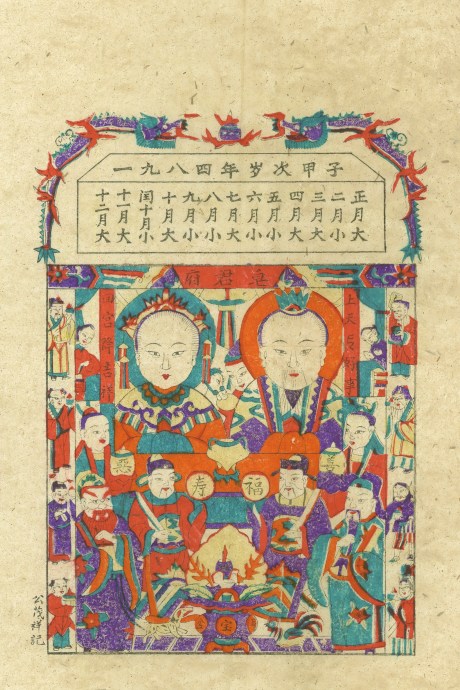 一九八四年岁次甲子
正月大
二月小
三月大
四月大
五月小
六月小
七月大
八月小
九月小
十月大
闰十月小
十一月大
十二月大
君府
上天言好事
回宫降吉祥
善
惡
福寿
宝
公茂祥記